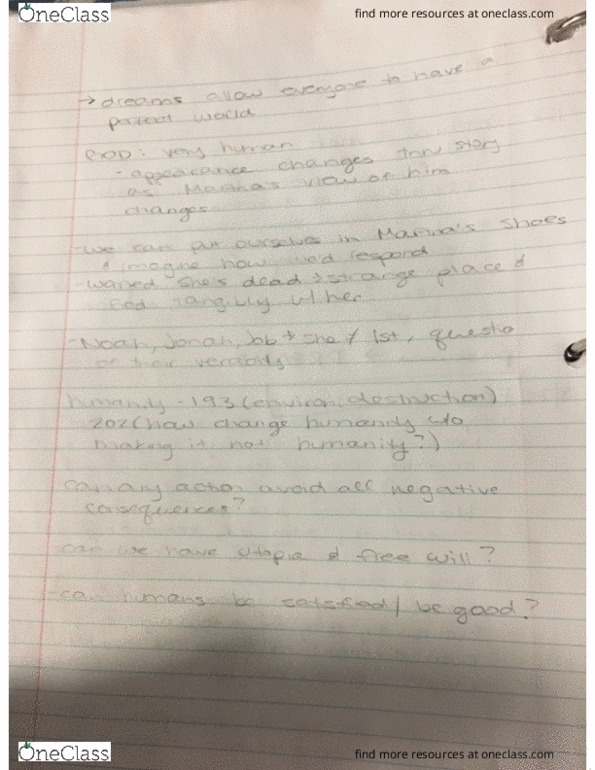 OneClass
find more resources at oneclass.com
→ dreams allow everyone to have a
perfect world
GOD: very human
- appearance changes thru story
as Marina's view of him
changes
-we can put ourselves in Marina's shoes
& imagine how we'd respond
-worried she's dead → strange place &
God tangibly w/ her
-Noah, Jonah, Job → she 1st, questio
of their veracity
humanity - 193 (environ. destruction)
202 (how change humanity w/o
making it not humanity?)
can any action avoid all negative
consequences?
can we have utopia & free will?
-can humans be satisfied / be good?
OneClass
find more resources at oneclass.com